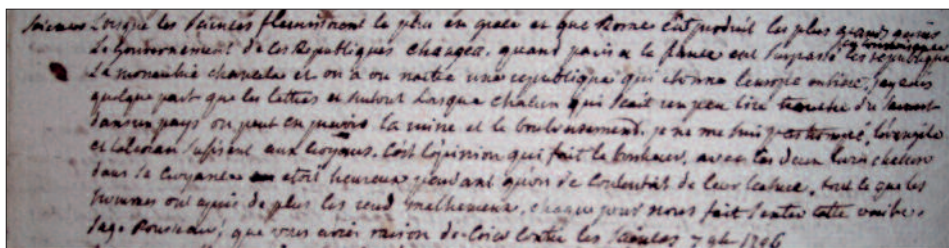 Sciences Lorsque les sciences fleurirent le plus en grece et que Rome eut produit les plus grands genies
Le Gouvernement de les Republiques changea. quand paris a le surpassé les republiques
La monarchie chancela et on a vu naitre une republique qui étonne l'europe entiere. j'ay
quelque part que les lettres et surtout Lorsque chacun qui scait un peu lire tranche du savant
dans un pays on peut en la ruine et le boulversement. je ne me suis pas trompé, l'evangile
et l'alcoran sufisent aux croyans. C'est l'opinion qui fait le bonheur, avec ces deux livres chacun
dans sa croyance etoit heureux pendant qu'on se contentoit de leur lecture, tout ce que les
hommes ont apris de plus les rend malheureux, chaque jour nous fait sentir cette verité.
sage Rousseau, que vous aviés raison contre les sciences 7 bre 1796